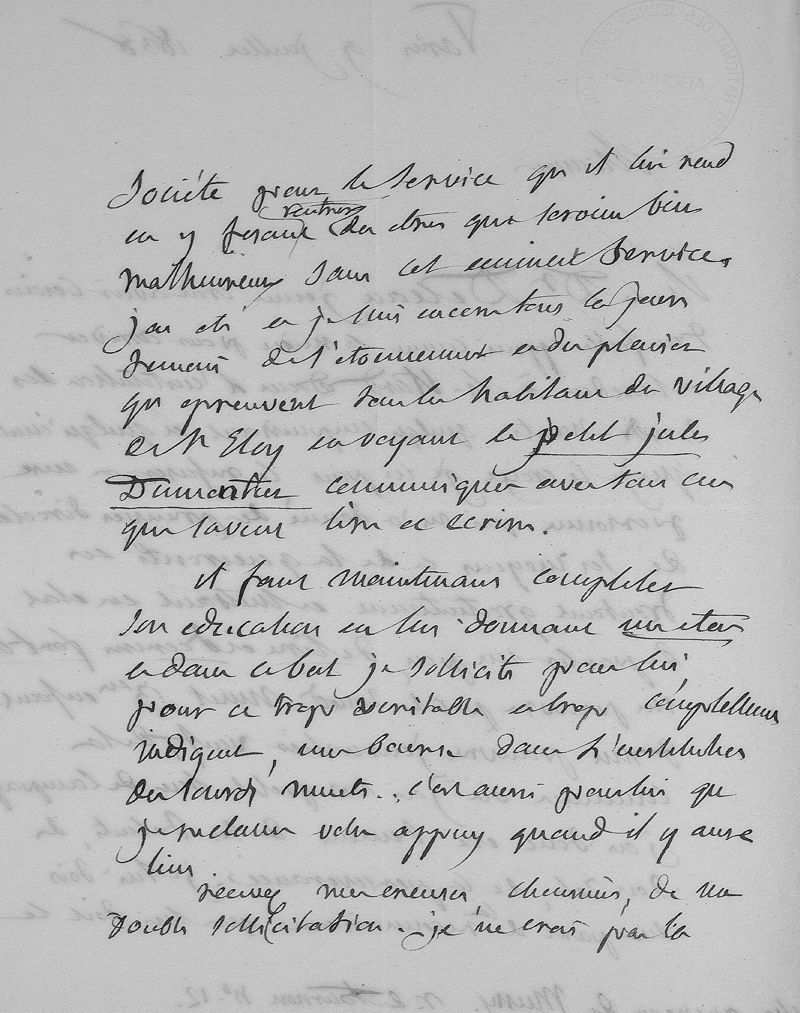 Société pour le service qu'il lui rend
rentrer
en y fesant des êtres qui seroient bien
malheureux sans cet eminent service.
j'ai été et je suis encore tous les jours
temoin de l'etonnement et du plaisir
qu'epreuvent tous les habitans du village
de St Eloy en voyant le petit jules
communiquer avec tous ceux
qui savent lire et ecrire.
il faut maintenant completter
son education en lui donnant un etat
et dans ce but je sollicite pour lui,
pour ce trop veritable et trop complettement
indigent, une bourse dans l'institution
des sourds muets... c'est aussi pour lui que
je reclame votre appuy quand il y aura
lieu
recevez mes excuses, de ma
double sollicitation. je ne crois pas la